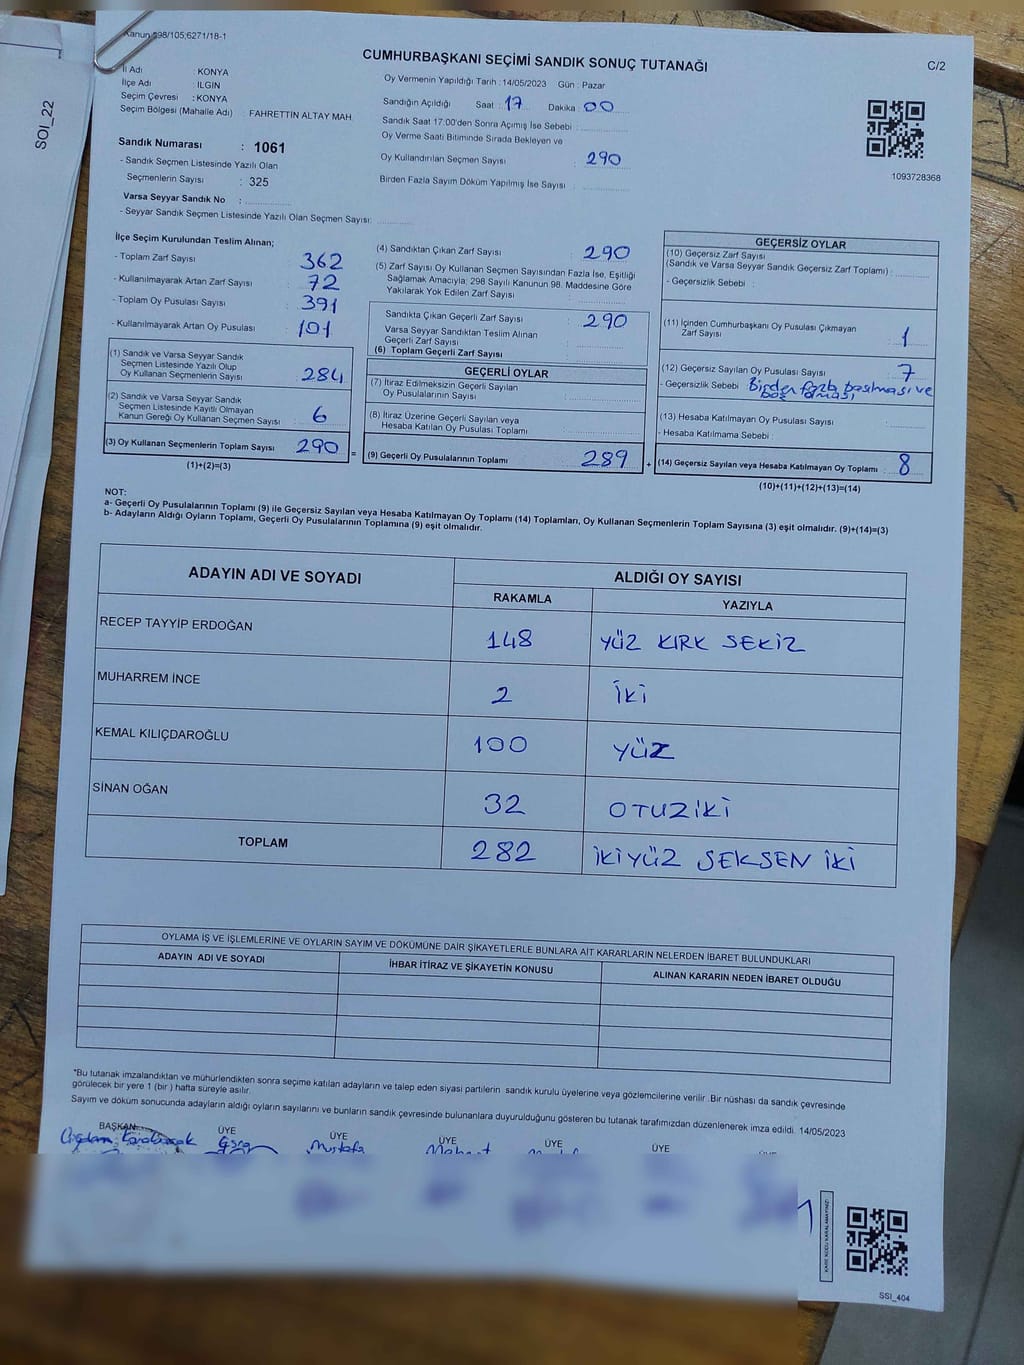 Kanun 298/105;6271/18-1
CUMHURBAŞKANI SEÇİMİ SANDIK SONUÇ TUTANAĞI
C/2
İl Adı : KONYA
İlçe Adı : ILGIN
Seçim Çevresi : KONYA
Seçim Bölgesi (Mahalle Adı) : FAHRETTİN ALTAY MAH.
Oy Vermenin Yapıldığı Tarih : 14/05/2023 Gün : Pazar
Sandığın Açıldığı Saat : 17 Dakika 00
Sandık Saat 17:00'den Sonra Açımış İse Sebebi :
Oy Verme Saati Bitiminde Sırada Bekleyen ve
Oy Kullandırılan Seçmen Sayısı : 290
Birden Fazla Sayım Döküm Yapılmış İse Sayısı :
1093728368
SOI_22
Sandık Numarası : 1061
- Sandık Seçmen Listesinde Yazılı Olan
Seçmenlerin Sayısı : 325
Varsa Seyyar Sandık No :
- Seyyar Sandık Seçmen Listesinde Yazılı Olan Seçmen Sayısı:
İlçe Seçim Kurulundan Teslim Alınan;
- Toplam Zarf Sayısı : 362
- Kullanılmayarak Artan Zarf Sayısı : 72
- Toplam Oy Pusulası Sayısı : 391
- Kullanılmayarak Artan Oy Pusulası : 101
(1) Sandık ve Varsa Seyyar Sandık
Seçmen Listesinde Yazılı Olup
Oy Kullanan Seçmenlerin Sayısı : 284
(2) Sandık ve Varsa Seyyar Sandık
Seçmen Listesinde Kayıtlı Olmayan
Kanun Gereği Oy Kullanan Seçmen Sayısı : 6
(3) Oy Kullanan Seçmenlerin Toplam Sayısı : 290
(1)+(2)=(3)
(4) Sandıktan Çıkan Zarf Sayısı : 290
(5) Zarf Sayısı Oy Kullanan Seçmen Sayısından Fazla İse, Eşitliği
Sağlamak Amacıyla; 298 Sayılı Kanunun 98. Maddesine Göre
Yakılarak Yok Edilen Zarf Sayısı :
Sandıkta Çıkan Geçerli Zarf Sayısı : 290
Varsa Seyyar Sandıktan Teslim Alınan
Geçerli Zarf Sayısı :
(6) Toplam Geçerli Zarf Sayısı
GEÇERLİ OYLAR
(7) İtiraz Edilmeksizin Geçerli Sayılan
Oy Pusulalarının Sayısı :
(8) İtiraz Üzerine Geçerli Sayılan veya
Hesaba Katılan Oy Pusulası Toplamı :
= (9) Geçerli Oy Pusulalarının Toplamı : 289
GEÇERSİZ OYLAR
(10) Geçersiz Zarf Sayısı
(Sandık ve Varsa Seyyar Sandık Geçersiz Zarf Toplamı) :
- Geçersizlik Sebebi :
(11) İçinden Cumhurbaşkanı Oy Pusulası Çıkmayan
Zarf Sayısı : 1
(12) Geçersiz Sayılan Oy Pusulası Sayısı : 7
- Geçersizlik Sebebi : Birden fazla basılması ve
boş olması
(13) Hesaba Katılmayan Oy Pusulası Sayısı :
- Hesaba Katılmama Sebebi :
+ (14) Geçersiz Sayılan veya Hesaba Katılmayan Oy Toplamı : 8
(10)+(11)+(12)+(13)=(14)
NOT:
a- Geçerli Oy Pusulalarının Toplamı (9) ile Geçersiz Sayılan veya Hesaba Katılmayan Oy Toplamı (14) Toplamları, Oy Kullanan Seçmenlerin Toplam Sayısına (3) eşit olmalıdır. (9)+(14)=(3)
b- Adayların Aldığı Oyların Toplamı, Geçerli Oy Pusulalarının Toplamına (9) eşit olmalıdır.
ADAYIN ADI VE SOYADI ALDIĞI OY SAYISI
RAKAMLA YAZIYLA
RECEP TAYYİP ERDOĞAN 148 YÜZ KIRK SEKİZ
MUHARREM İNCE 2 İKİ
KEMAL KILIÇDAROĞLU 100 YÜZ
SİNAN OĞAN 32 OTUZİKİ
TOPLAM 282 İKİYÜZ SEKSEN İKİ
OYLAMA İŞ VE İŞLEMLERİNE VE OYLARIN SAYIM VE DÖKÜMÜNE DAİR ŞİKAYETLERLE BUNLARA AİT KARARLARIN NELERDEN İBARET BULUNDUKLARI
ADAYIN ADI VE SOYADI İHBAR İTİRAZ VE ŞİKAYETİN KONUSU ALINAN KARARIN NEDEN İBARET OLDUĞU
*Bu tutanak imzalandıktan ve mühürlendikten sonra seçime katılan adayların ve talep eden siyasi partilerin sandık kurulu üyelerine veya gözlemcilerine verilir .Bir nüshası da sandık çevresinde
görülecek bir yere 1 (bir ) hafta süreyle asılır.
Sayım ve döküm sonucunda adayların aldığı oyların sayılarını ve bunların sandık çevresinde bulunanlara duyurulduğunu gösteren bu tutanak tarafımızdan düzenlenerek imza edildi. 14/05/2023
BAŞKAN ÜYE ÜYE ÜYE ÜYE ÜYE
Esra Mustafa
SSI_404